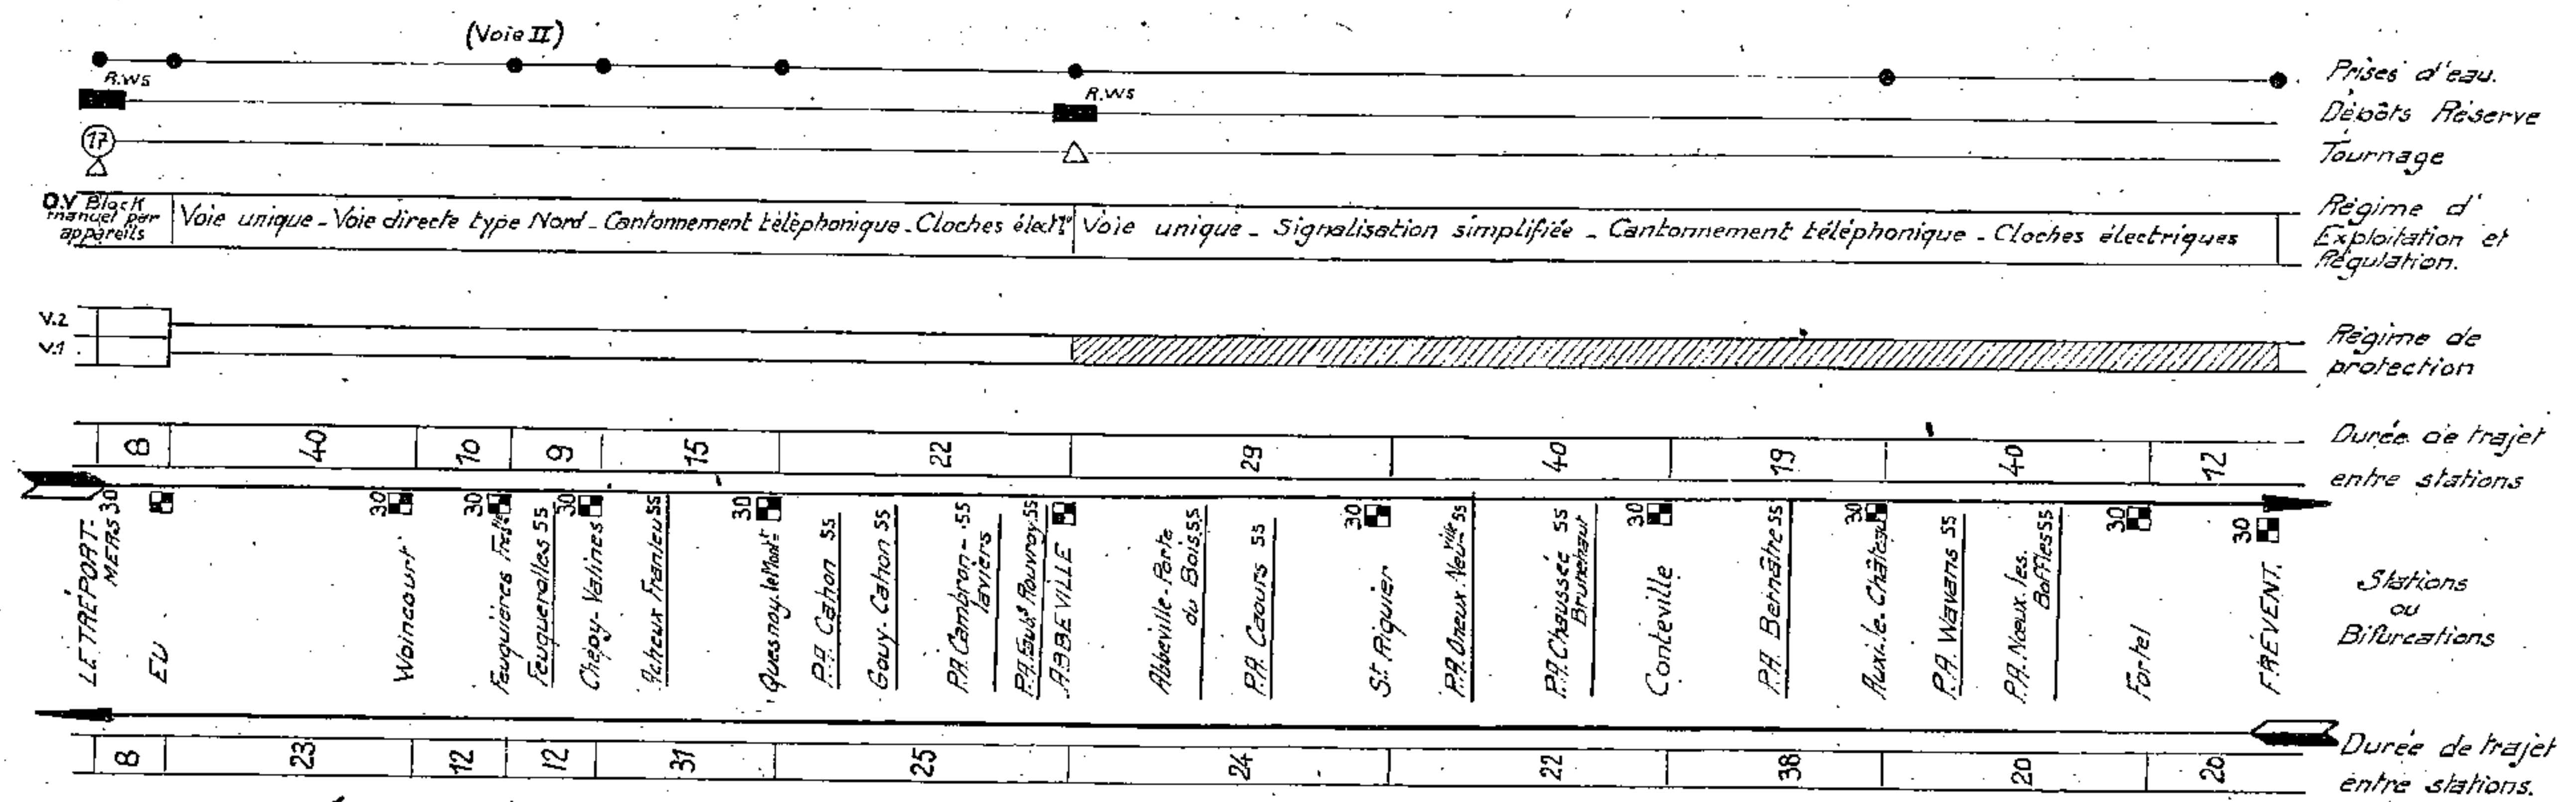 (Voie II)
Prises d'eau.
R.WS
R.WS
Dépôts Réserve
17
Tournage
D.V Block
manuel par
appareils
Voie unique - Voie directe type Nord - Cantonnement téléphonique - Cloches élect.
Voie unique - Signalisation simplifiée - Cantonnement téléphonique - Cloches électriques
Régime d'
Exploitation et
Régulation.
V.2
V.1
Régime de
protection
8 40 10 9 15 22 29 40 19 40 12
Durée de trajet
entre stations
30 30 30 30 30 30 30 30 30 30
LE TRÉPORT-
MERS
EU
Woincourt
Feuquières Fres
Feuquerolles SS
Chépy-Valines
Acheux Franleu SS
Quesnoy-le-Mont
P.A. Cahon SS
Gouy-Cahon SS
P.A. Cambron- SS
laviers
P.A. Rouvroy SS
ABBEVILLE
Abbeville-Porte
du Bois SS
P.A. Caours SS
St Riquier
P.A. Oneux-Neuville SS
P.A. Chaussée SS
Brunehaut
Conteville
P.A. Bernâtre SS
Auxi-le-Château
P.A. Wavans SS
P.A. Nœux-les-
Boffles SS
Fortel
FRÉVENT.
Stations
ou
Bifurcations
8 23 12 12 31 25 24 22 38 20 20
Durée de trajet
entre stations.